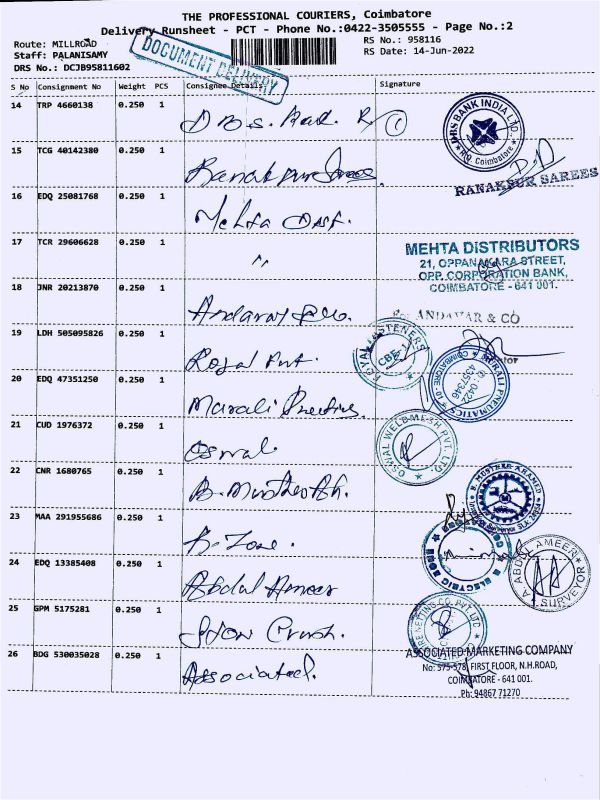 THE PROFESSIONAL COURIERS, Coimbatore
Delivery Runsheet - PCT - Phone No.:0422-3505555 - Page No.:2
Route: MILLROAD
RS No.: 958116
Staff: PALANISAMY
RS Date: 14-Jun-2022
DRS No.: DCJB95811602
DOCUMENT DELIVERY
S No Consignment No Weight PCS Consignee Details Signature
14 TRP 4660138 0.250 1 D B S.
DBS BANK INDIA LTD. R.O. Coimbatore
15 TCG 40142380 0.250 1 Ranakpur Sarees
RANAKPUR SAREES
16 EDQ 25081768 0.250 1 Mehta Dist.
17 TCR 29606628 0.250 1 "
MEHTA DISTRIBUTORS
21, OPPANAKARA STREET,
OPP. CORPORATION BANK,
COIMBATORE - 641 001.
18 JNR 20213870 0.250 1 Andavar & Co.
For ANDAVAR & CO
19 LDH 505095826 0.250 1 Royal
ROYAL FASTENERS CBE-1
20 EDQ 47351250 0.250 1 Marali
MURALI PNEUMATICS COIMBATORE 0422 4357346
21 CUD 1976372 0.250 1 Oswal
OSWAL WELDMESH PVT. LTD.
22 CNR 1680765 0.250 1 B.
MUSTHER AHAMED
23 MAA 291955686 0.250 1 B. Zone.
ELECTRIC
24 EDQ 13385408 0.250 1 Abdul Ameer
A ABDUL AMEER SURVEYOR
25 GPM 5175281 0.250 1 Stow Crush.
MARKETING CO. PVT. LTD
26 BDG 530035028 0.250 1 Associated.
ASSOCIATED MARKETING COMPANY
No: 575-578, FIRST FLOOR, N.H.ROAD,
COIMBATORE - 641 001.
Ph: 94867 71270